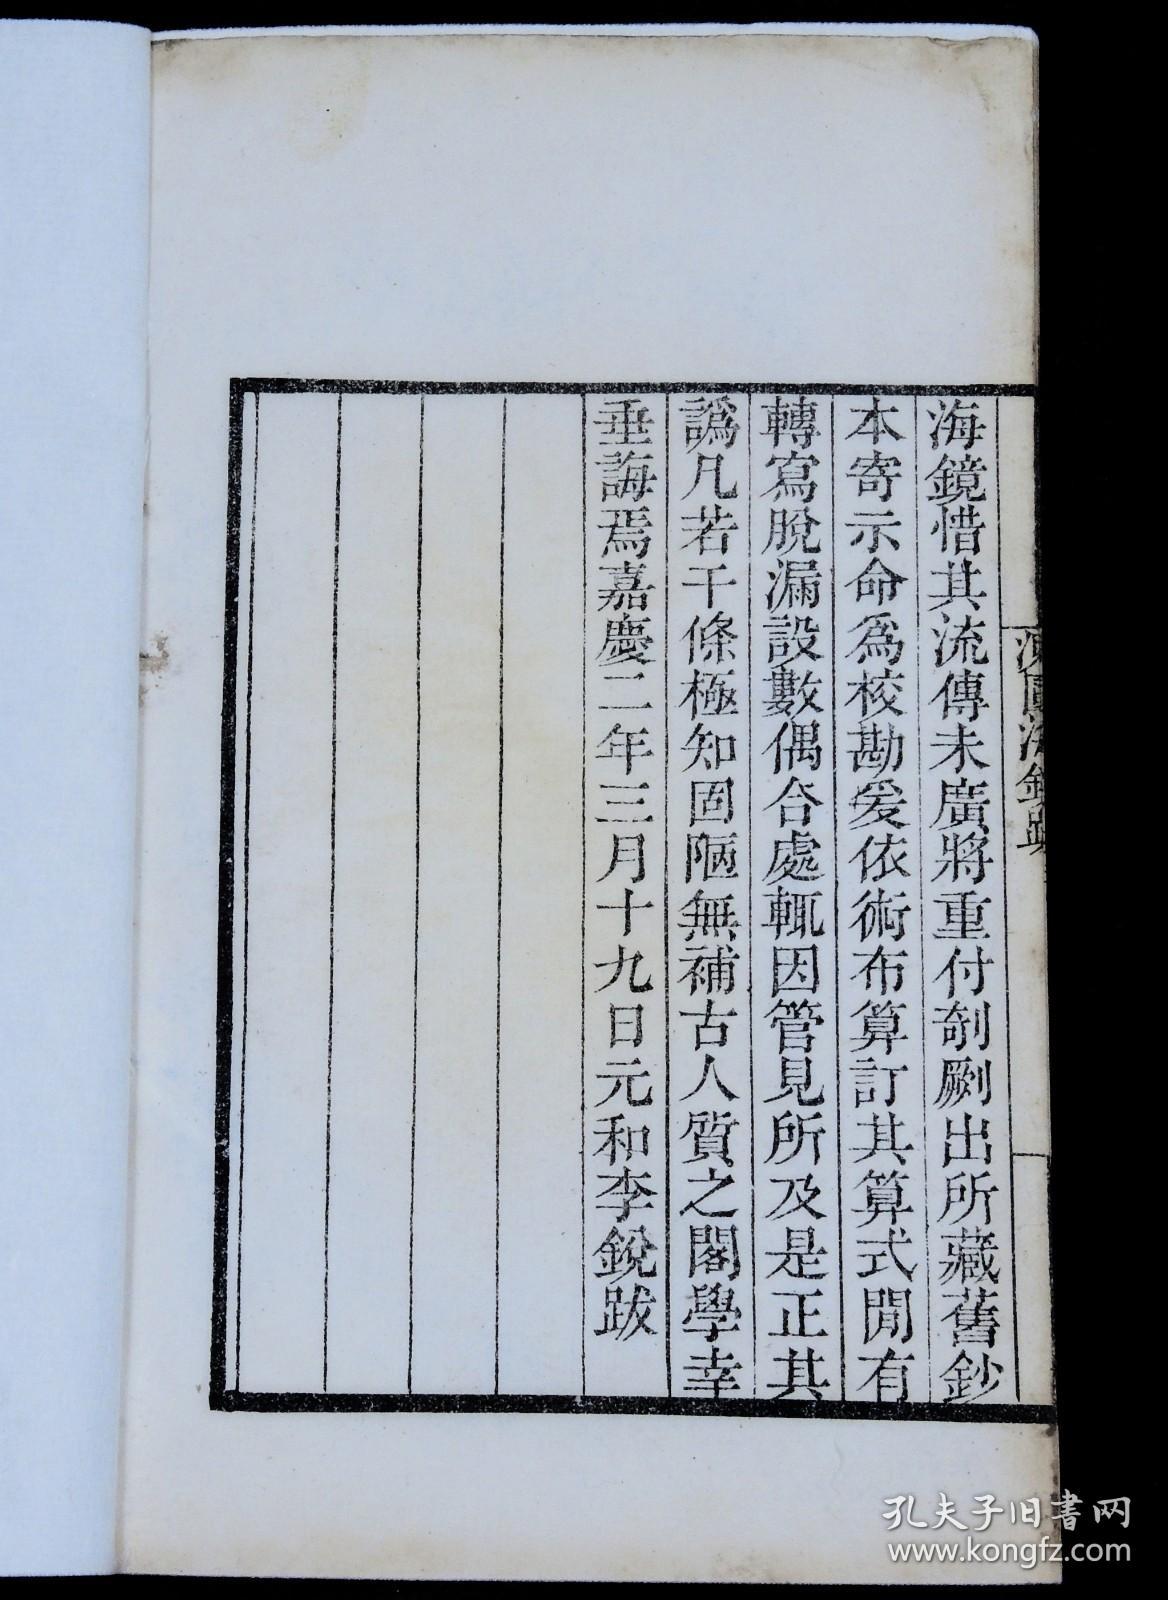 海鏡惜其流傳未廣將重付剞劂出所藏舊鈔
本寄示命爲校勘爰依術布算訂其算式閒有
轉寫脫漏設數偶合處輒因管見所及是正其
譌凡若干條極知固陋無補古人質之閣學幸
垂誨焉嘉慶二年三月十九日元和李銳跋
孔夫子旧书网
www.kongfz.com